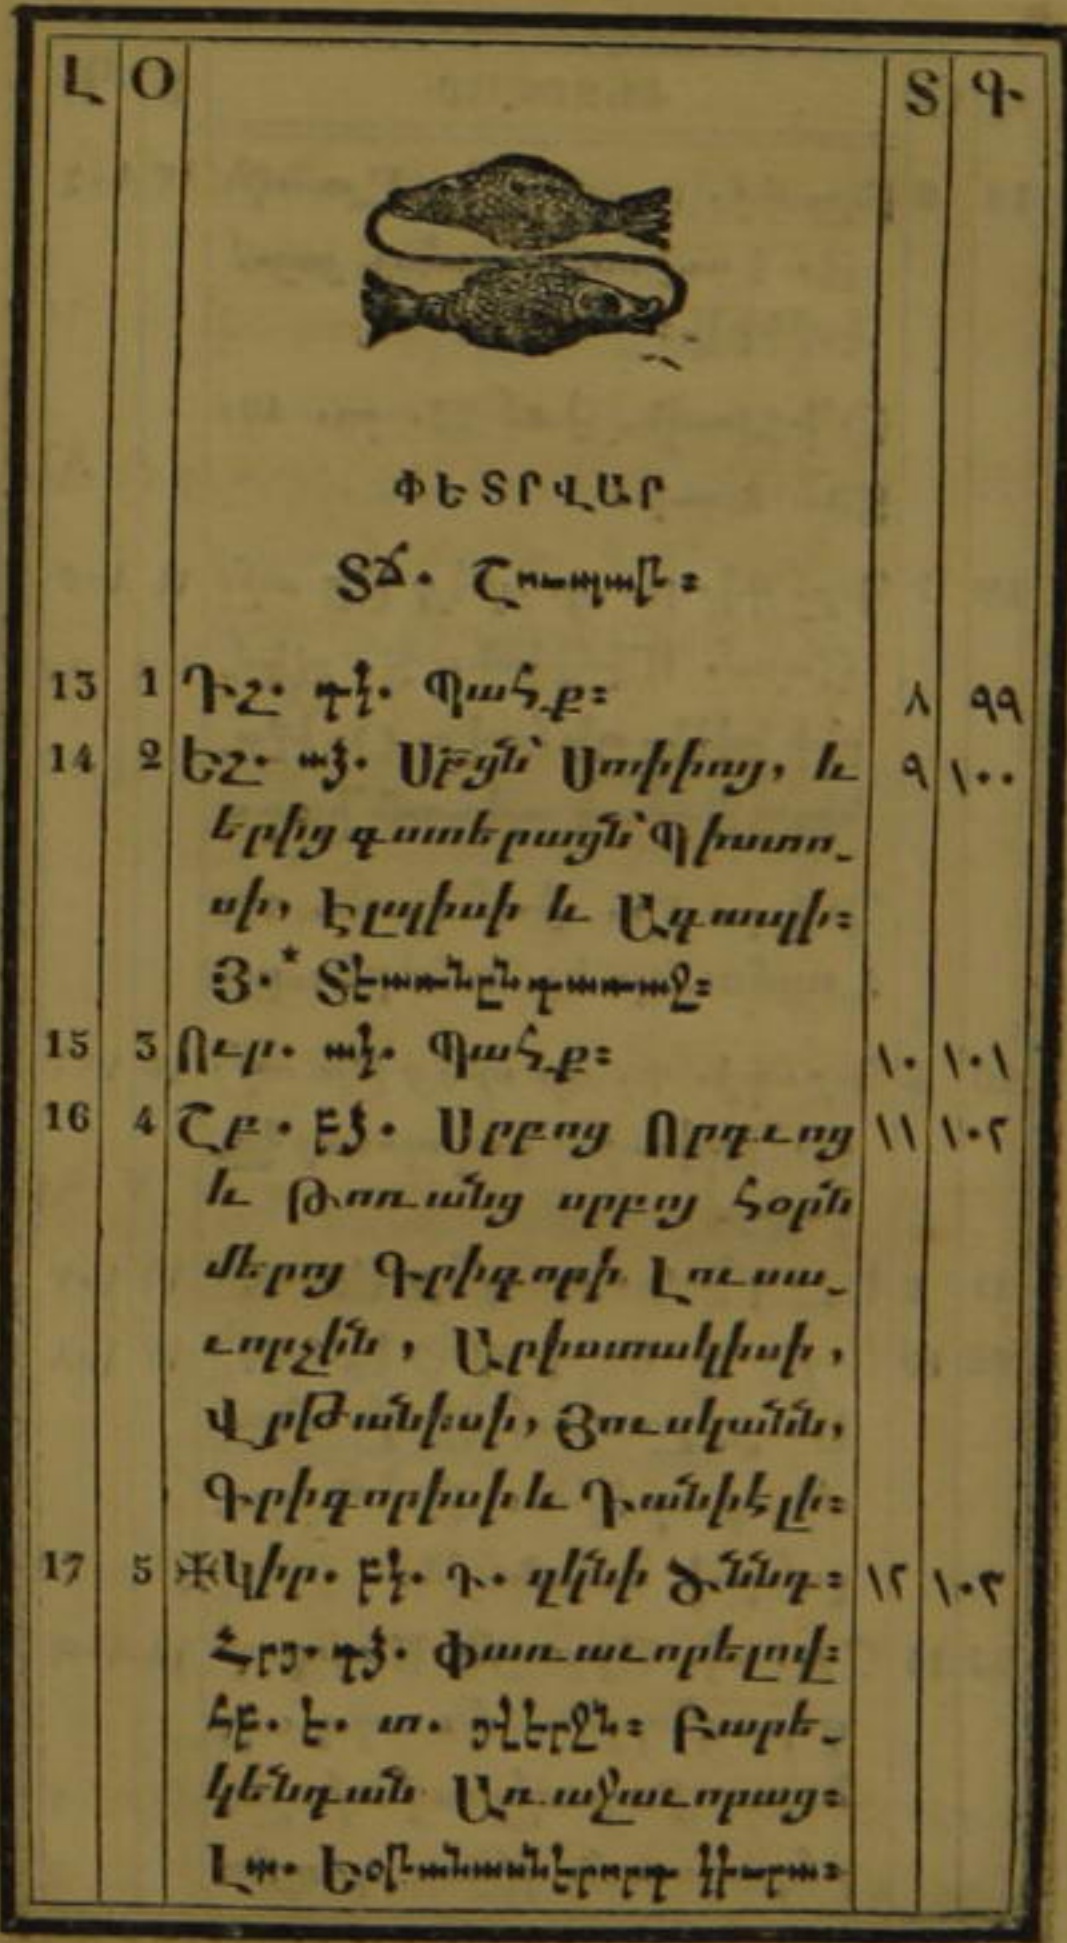 Լ Օ Տ Գ
ՓԵՏՐՎԱՐ
ՏՃ. Շուպալն։
13 1 Դշ. գկ. Պահք։ ٨ ٩٩
14 2 Եշ. ած. Սրբցն՝ Սոփիոյ, և ٩ ١٠٠
երից գստերացն՝ Պիստո-
սի, Էլպիսի և Ագապի։
Յ.* Տէառնընդառաջ։
15 3 Ուր. ակ. Պահք։ ١٠ ١٠١
16 4 Շբ. բձ. Սրբոց Որդւոց ١١ ١٠٢
և Թոռանց սրբոյ հօրն
մերոյ Գրիգորի Լուսա-
ւորչին, Արիստակիսի,
Վրթանիսի, Յուսկանն,
Գրիգորիսի և Դանիէլի։
17 5 ✠Կիր. բկ. Դ. զկնի Ծննդ։ ١٢ ١٠٣
Հրց. գձ. Փառաւորելով։
հբ. է. տ. յվերջն։ Բարե-
կենդան Առաջաւորաց։